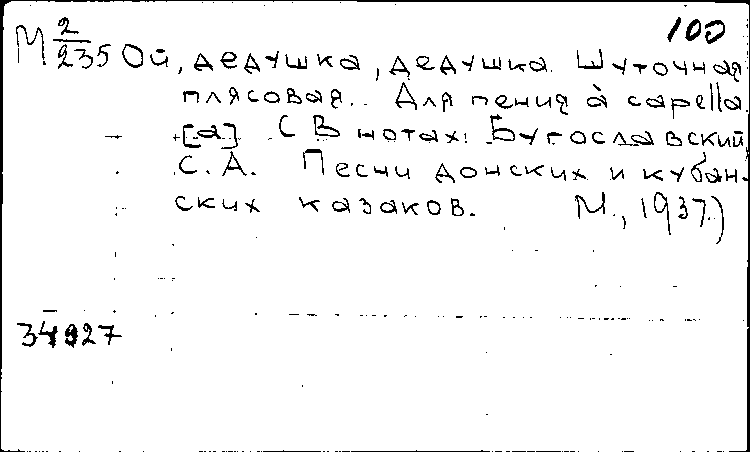 100
М 2/235 Ой, дедушка, дедушка. Шуточная
плясовая.. Для пения à capella.
[a] (В нотах: Бугославский
С.А. Песни донских и кубан-
ских казаков. М., 1937.)
34927